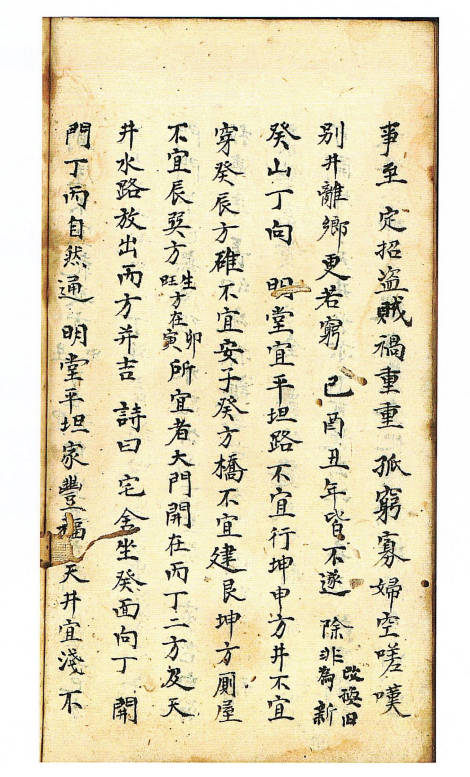 事至 定招盗賊禍重重 孤窮寡婦空嗟嘆
別井離鄉更若窮 己酉丑年皆不遂 除非改换旧為新
癸山丁向 明堂宜平坦路不宜行坤申方井不宜
穿癸辰方碓不宜安子癸方橋不宜建艮坤方厠屋
不宜辰巽方生方在卯旺寅所宜者大門開在丙丁二方及天
井水路放出丙方并吉 詩曰 宅舍坐癸面向丁 開
門丁丙自然通 明堂平坦家豐福 天井宜淺不